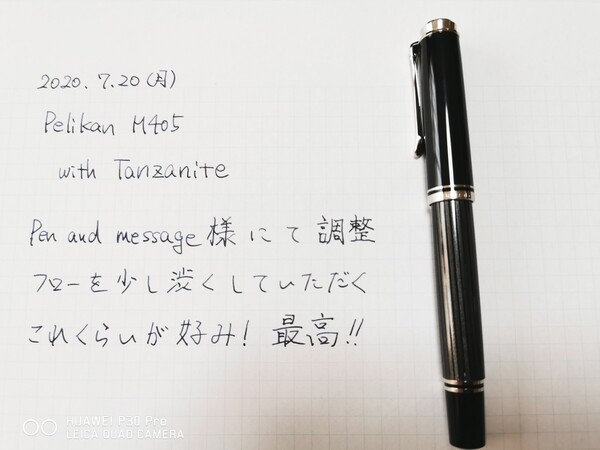 2020.7.20(月)
Pelikan M405
with Tanzanite
Pen and message様にて調整
フローを少し渋くしていただく
これくらいが好み! 最高!!
HUAWEI P30 Pro
LEICA QUAD CAMERA